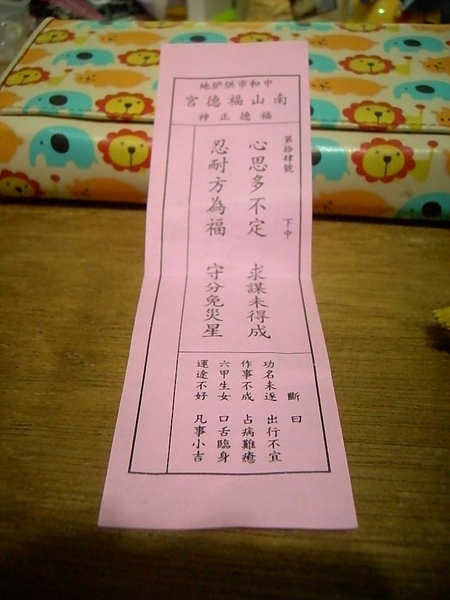 中和市烘炉地
南山福德宮
福德正神
第拾肆號 下中
心思多不定 求謀未得成
忍耐方為福 守分免災星
斷曰
功名未遂 出行不宜
作事不成 占病難癒
六甲生女 口舌臨身
運途不好 凡事小吉